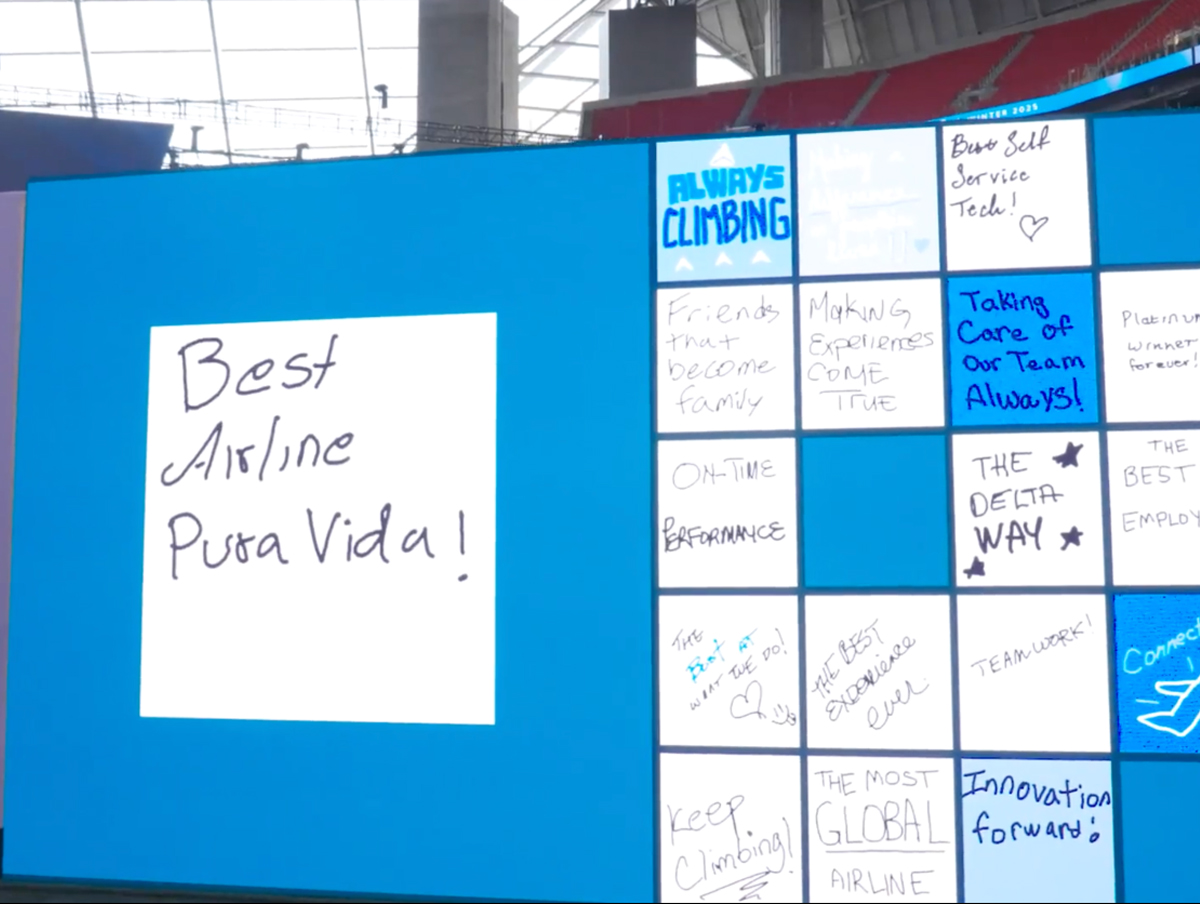 WINTER 2025
Best
Airline
Pura Vida!
ALWAYS
CLIMBING
Best Self
Service
Tech!
Friends
that
become
family
MAKING
Experiences
COME
TRUE
Taking
Care of
Our Team
Always!
Platinum
Winner
forever!
ON-TIME
PERFORMANCE
THE
DELTA
WAY
THE
BEST
EMPLOY
THE
Best AT
WHAT WE DO!
THE BEST
EXPERIENCE
ever.
TEAMWORK!
Connect
Keep
Climbing!
THE MOST
GLOBAL
AIRLINE
Innovation
forward!